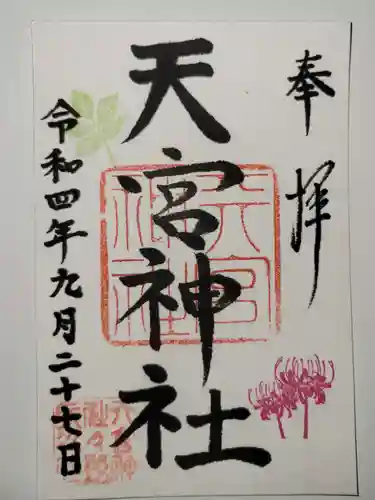 奉拝
天宮神社
天宮神社
令和四年九月二十七日